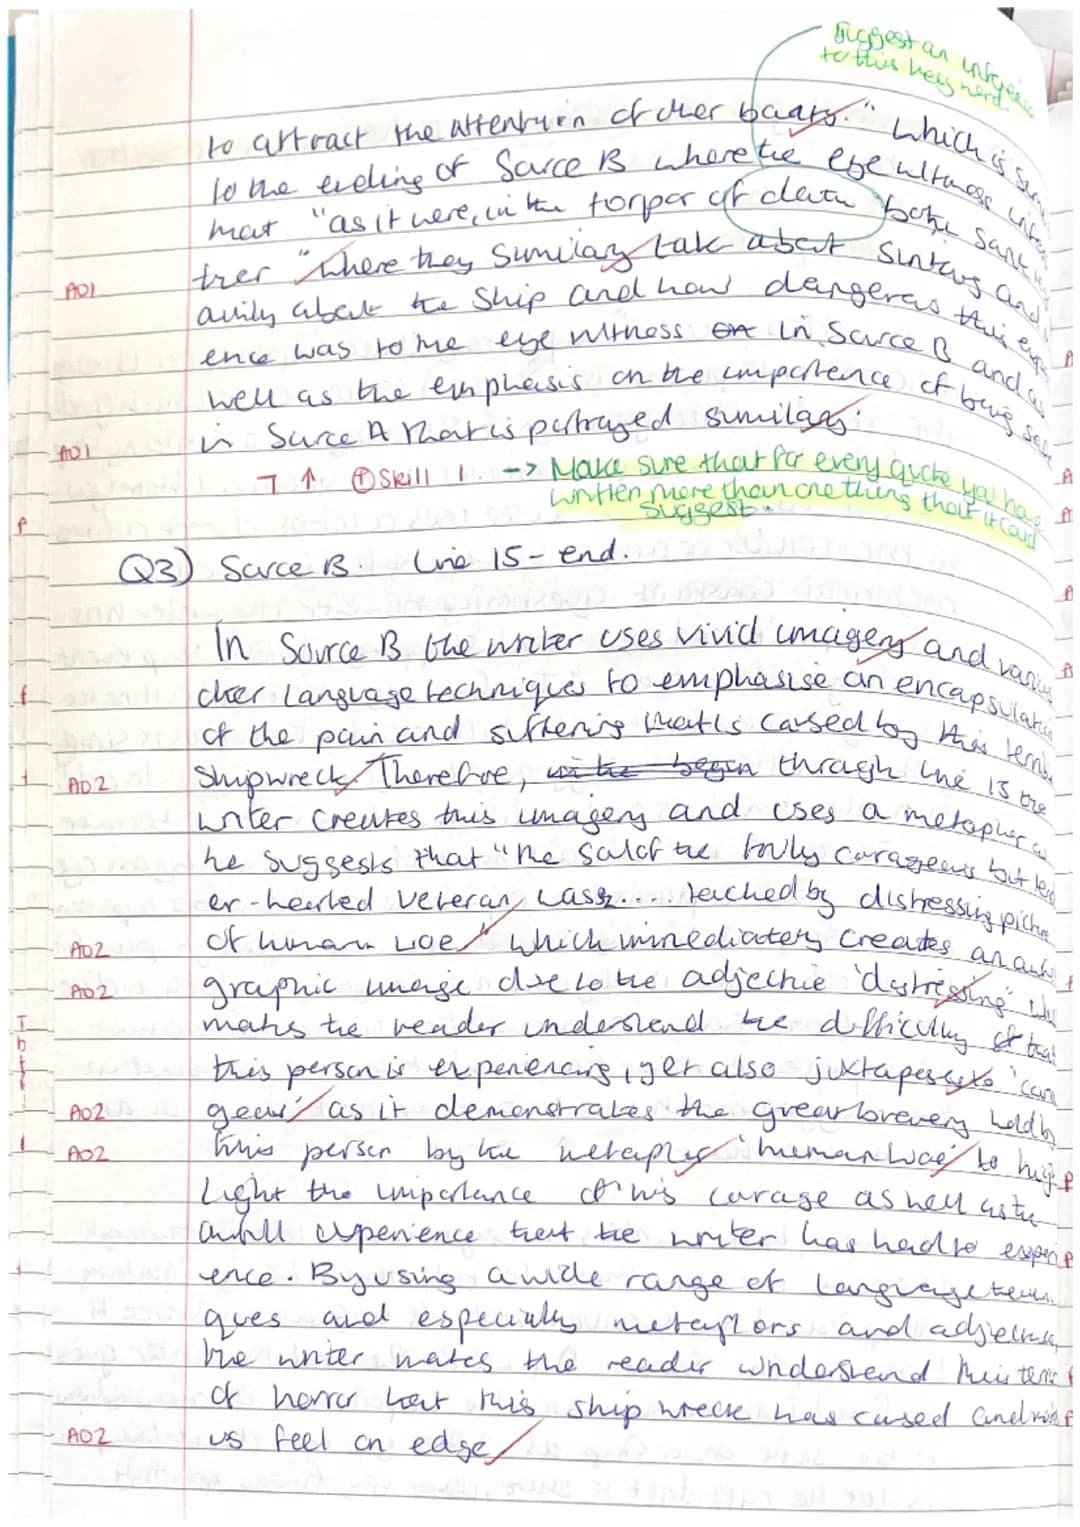 Suggest an inference
to this key word.
to attract the attention of other boats." which is
to the ending of Source B where the eye witness
that "as it were, in the torpor of death both sank
ther" where they similary talk about sinking and
ally about the ship and how dangerous this exp
AO1
ence was to the eye witness in Source B and as
well as the emphasis on the importence of being
in Source A that is portrayed similary.
AO1
7 ↑ + Skill 1. -> Make sure that for every quote you have
written more than one thing that it could
suggest.
Q3) Source B. Line 15 - end.
In Source B the writer uses vivid imagery and
other language techniques to emphasise an encapsulation
of the pain and suffering that is caused by this
shipwreck. Therefore, in the begin through line 15 the
AO2
writer creates this imagery and uses a metaphor as
he suggests that "the soul of the truly corageous but
er-hearted veteran, was..... teached by distressing
of human woe" which immediatety creates an
AO2
graphic image due to the adjective 'distressing'
AO2
maks the reader understend the difficulty of that
this person is experiencing, yet also juxtaposes to 'cora
geous' as it demonstrates the great brevery held by
AO2
this person by the metaphor 'human woe' to high
AO2
light the importance of his corage as well as the
awfull experience that the writer has had to experi
ence. By using a wide range of language
ques and especially metaphors and adjectives,
the writer makes the reader understend this
of horror that this ship wreck has cused and
us feel on edge
AO2